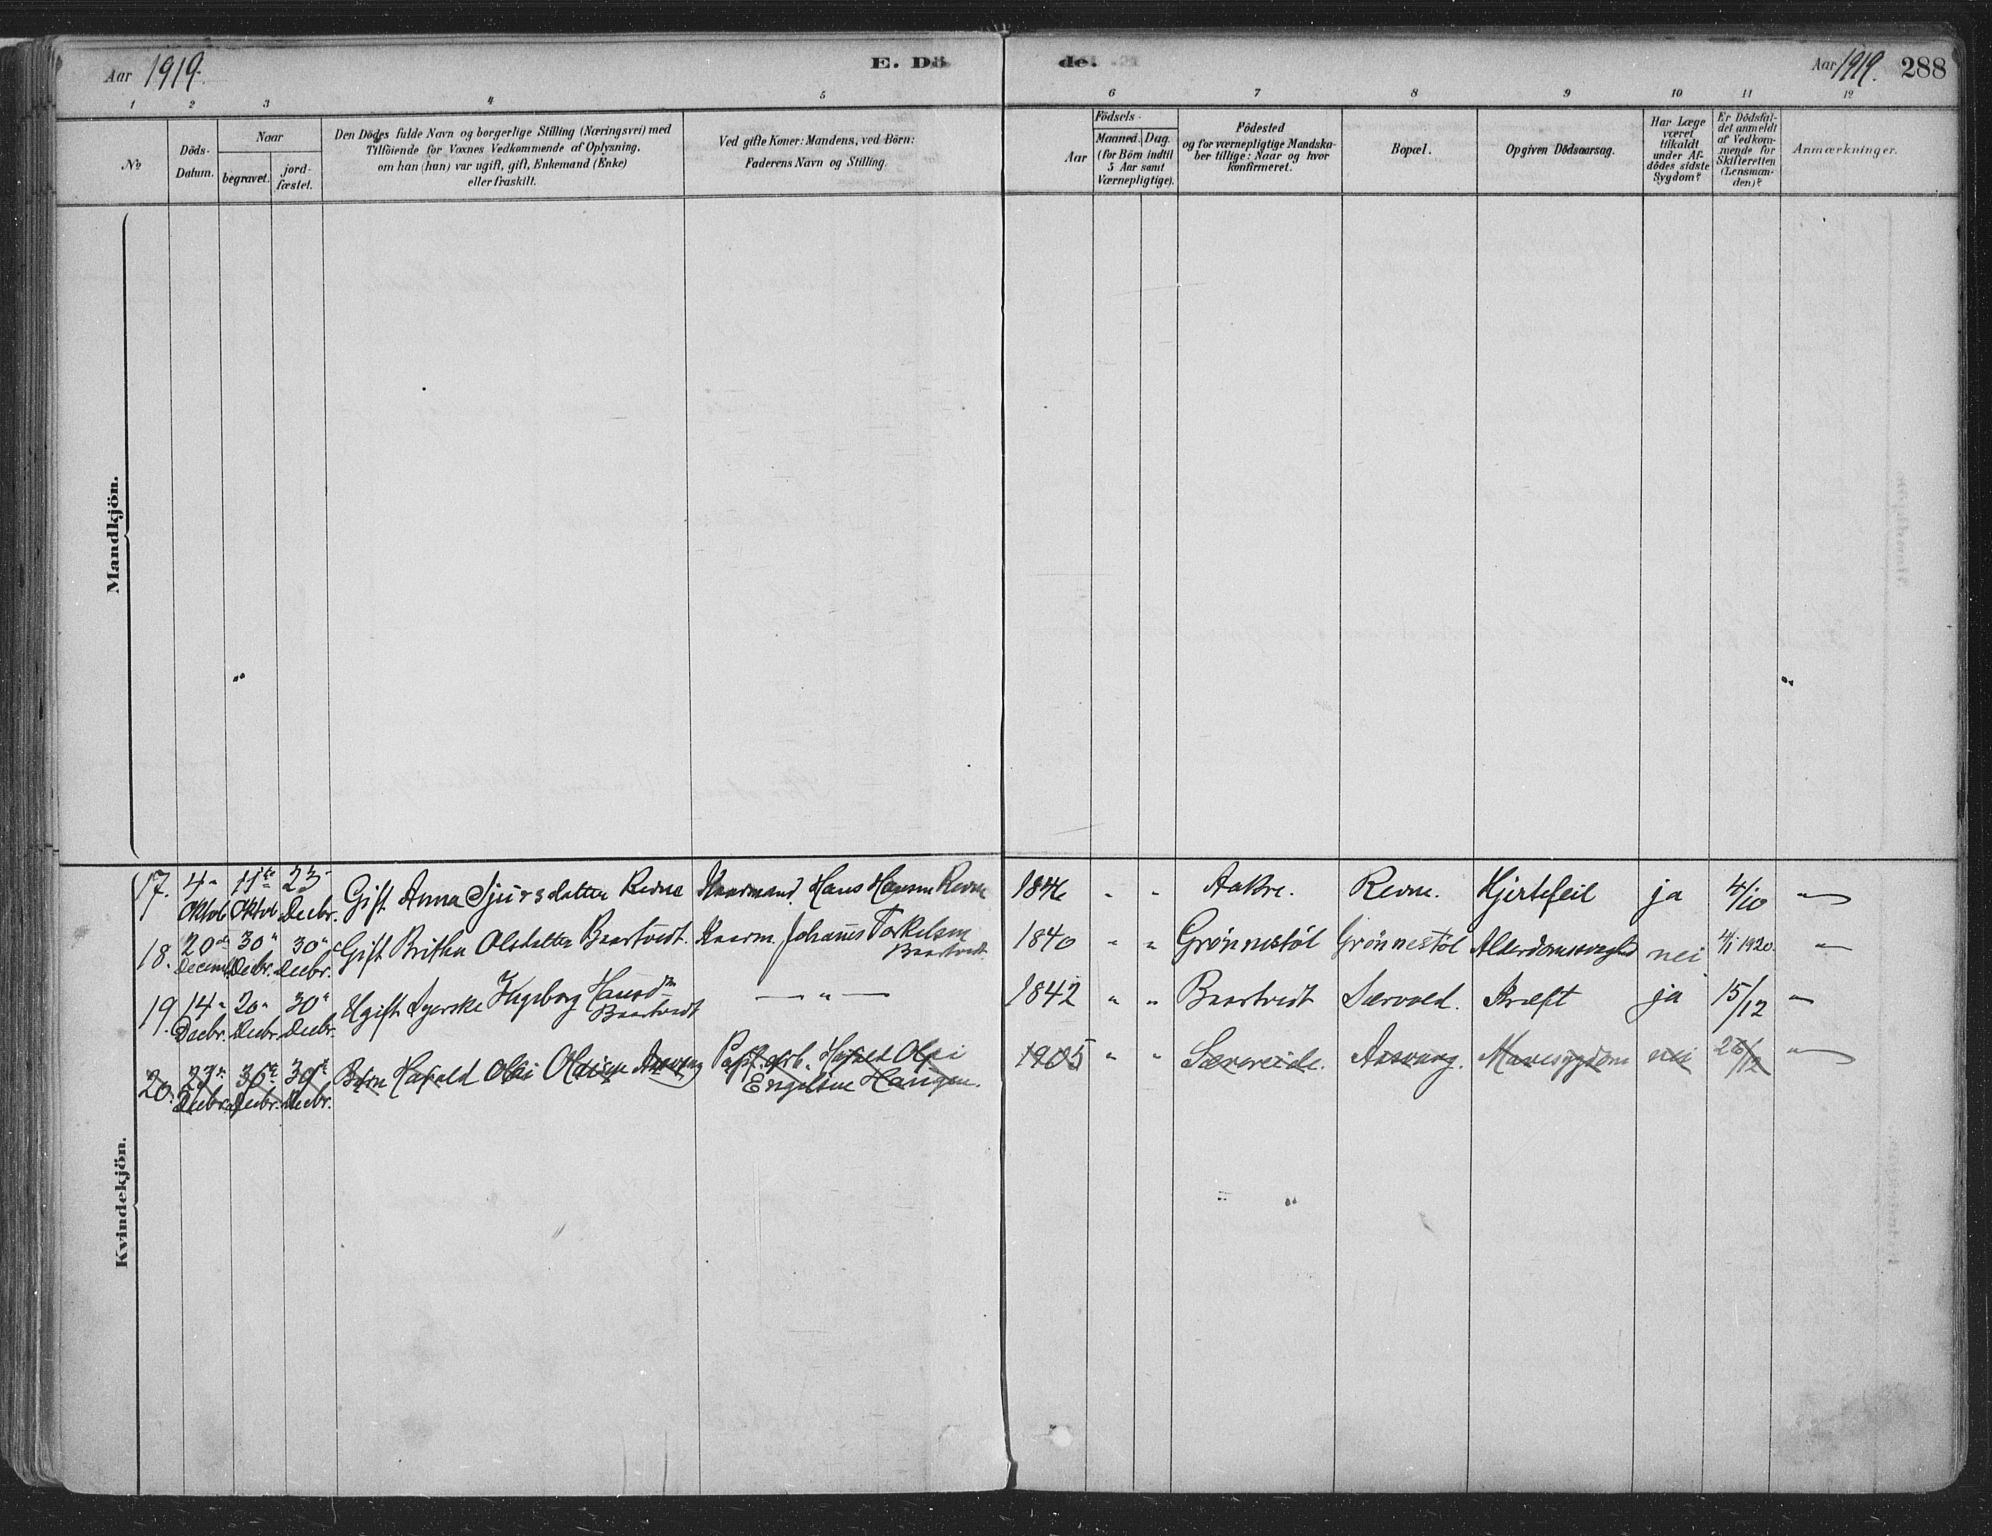 Aar 1919. E. Dö
de. Aar 1919. 288
1 2 3 4 5 6 7 8 9 10 11 12
No
Döds-
Datum.
Naar
begravet.
jord-
fæstet.
Den Dödes fulde Navn og borgerlige Stilling (Næringsvei) med
Tilföiende for Voxnes Vedkommende af Oplysning,
om han (hun) var ugift, gift, Enkemand (Enke)
eller fraskilt.
Ved gifte Koner: Mandens, ved Börn:
Faderens Navn og Stilling.
Födsels-
Aar
Maaned. Dag.
(for Börn indtil
5 Aar samt
Værnepligtige).
Födested
og for værnepligtige Mandska-
ber tillige: Naar og hvor
konfirmeret.
Bopæl.
Opgiven Dödsaarsag.
Har Læge
været
tilkaldt
under Af-
dödes sidste
Sygdom?
Er Dödsfal-
det anmeldt
af Vedkom-
mende for
Skifteretten
(Lensman-
den)?
Anmærkninger.
Mandkjön.
" "
Kvindekjön.
17. 4- Oktob 11te Oktob 23- Decbr. Gift Anna Sjursdatter Revne Kaarmand. Hans Hansen Revne 1846 " " Aakre. Revne. Hjertefeil ja 4/10 "
18. 20de Decemb. 30" Decbr. 30" Decbr. Gift Britha Olsdatter Baartvedt. Kaarm. Johannes Torkelsen
Baartvedt. 1840 " " Grönnestöl Grönnestöl Alderdomssvaghed nei 4/1 1920. "
19. 14" Decbr. 20" Decbr. 30" Decbr. Ugift Ingeborg Hansdtr
Baartvedt — " — 1842 " " Baartvedt Særvold. Kræft ja 15/12 "
20. 23" Decbr. 30te Decbr. 30te Decbr. Barn Harald Olai Olaisen 1905 " " Særereide. Mavesygdom nei 26/12 "
" "